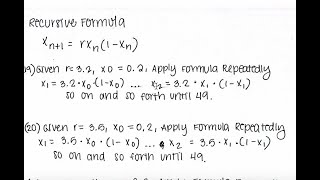 Recursive Formula
Xn+1 = rxn(1-xn)
19) Given r= 3.2, x0 = 0.2, Apply Formula Repeatedly
x1 = 3.2 • x0 • (1-x0) ... x2 = 3.2 • x1 • (1-x1)
so on and so forth until 49.
(20) Given r= 3.5, x0 = 0.2, Apply Formula Repeatedly
x1 = 3.5 • x0 • (1-x0) ... x2 = 3.5 • x1 • (1-x1)
so on and so forth until 49.